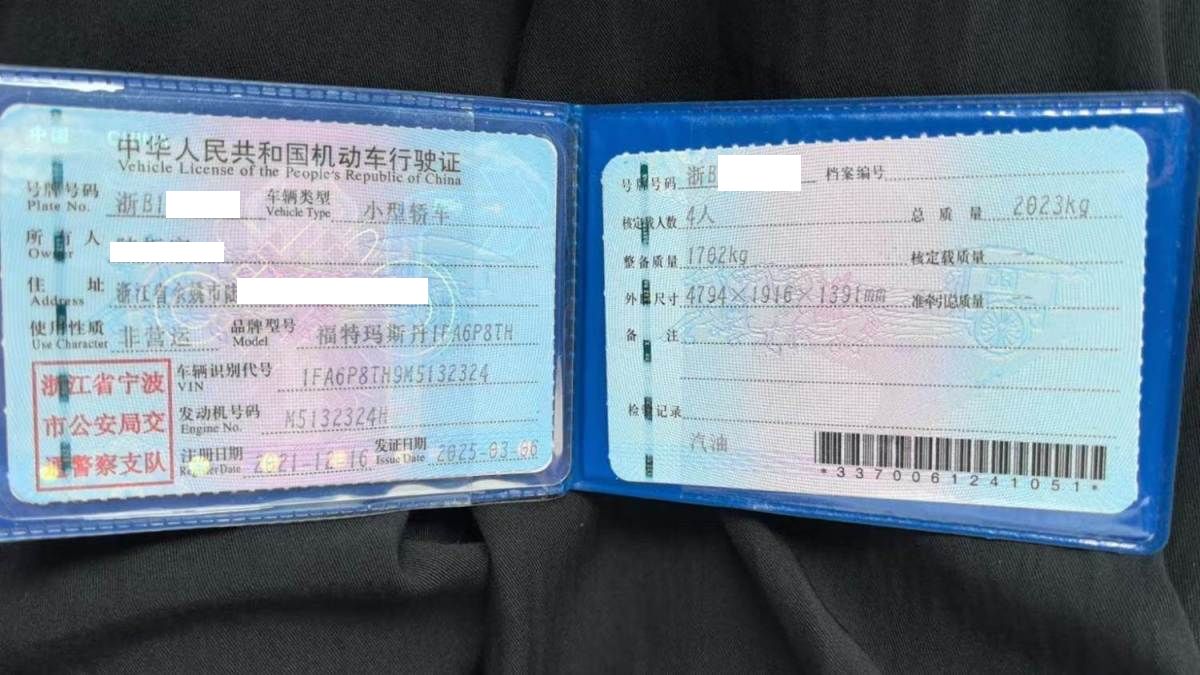 中国 CHINA
中华人民共和国机动车行驶证
Vehicle License of the People's Republic of China
号牌号码 浙B1 车辆类型 小型轿车
Plate No. Vehicle Type
所有人
Owner
住址 浙江省余姚市陆
Address
使用性质 非营运 品牌型号 福特玛斯丹1FA6P8TH
Use Character Model
浙江省宁波
市公安局交
通警察支队
车辆识别代号 1FA6P8TH9M5132324
VIN
发动机号码 M5132324H
Engine No.
注册日期 2021-12-16 发证日期 2025-03-06
Register Date Issue Date
号牌号码 浙B 档案编号
核定载人数 4人 总质量 2023kg
整备质量 1702kg 核定载质量
外廓尺寸 4794×1916×1391mm 准牵引总质量
备注
检验记录
汽油
*3370061241051*